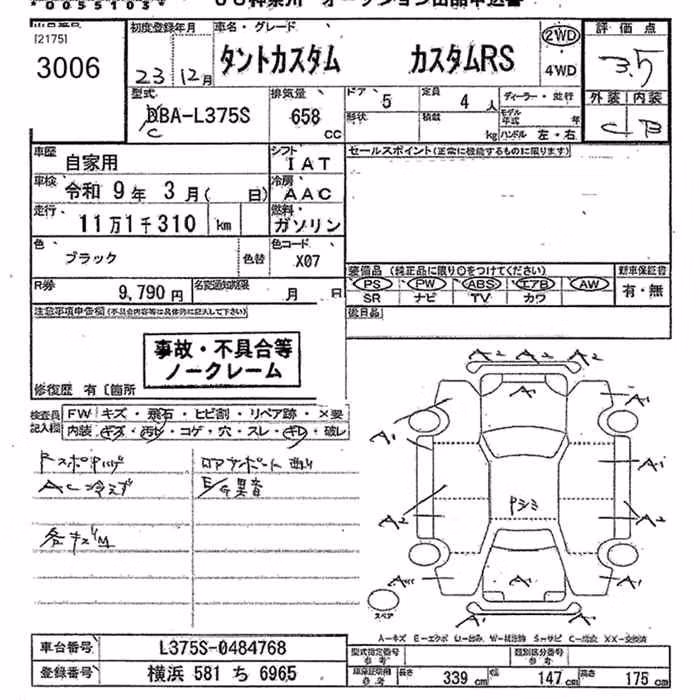 3006
[2175]
初度登録年月
23年12月
車名・グレード
タントカスタム カスタムRS
2WD
4WD
評価点
3.5
外装 内装
C B
型式
DBA-L375S
C
排気量
658 cc
ドア 5
定員 4人
形状
積載 kg
ディーラー・並行
モデル年式 年
ハンドル 左・右
車歴 自家用
シフト IAT
セールスポイント(正常に機能するものに限ります)
車検 令和 9年 3月( 日)
冷房 AAC
走行 11万1千310 km
燃料 ガソリン
色 ブラック 色替
色コード X07
装備品 (純正品に限り○をつけてください)
新車保証書
PS PW ABS エアB AW
有・無
SR ナビ TV カワ
R券 9,790円
名変通知期限 月 日
後日品
注意事項申告欄(不具合内容等は具体的に記入して下さい)
事故・不具合等
ノークレーム
修復歴 有〔箇所
検査員記入欄
FW キズ・飛石・ヒビ割・リペア跡・×要
内装 キズ・汚レ・コゲ・穴・スレ・キレ・破レ
AC冷えず
各キズM
E/G異音
A2 A2 A2
A1 A1
A1 A1
A2 A2
A1 A1
A1 A1
スペア
A-キズ E-エクボ U-凹み W-補修跡 S-サビ C-腐食 XX-交換済
車台番号 L375S-0484768
登録番号 横浜 581 ち 6965
型式指定番号 参考
類別区分番号 参考
車庫証明用 参考
長さ 339 cm 幅 147 cm 高さ 175 cm